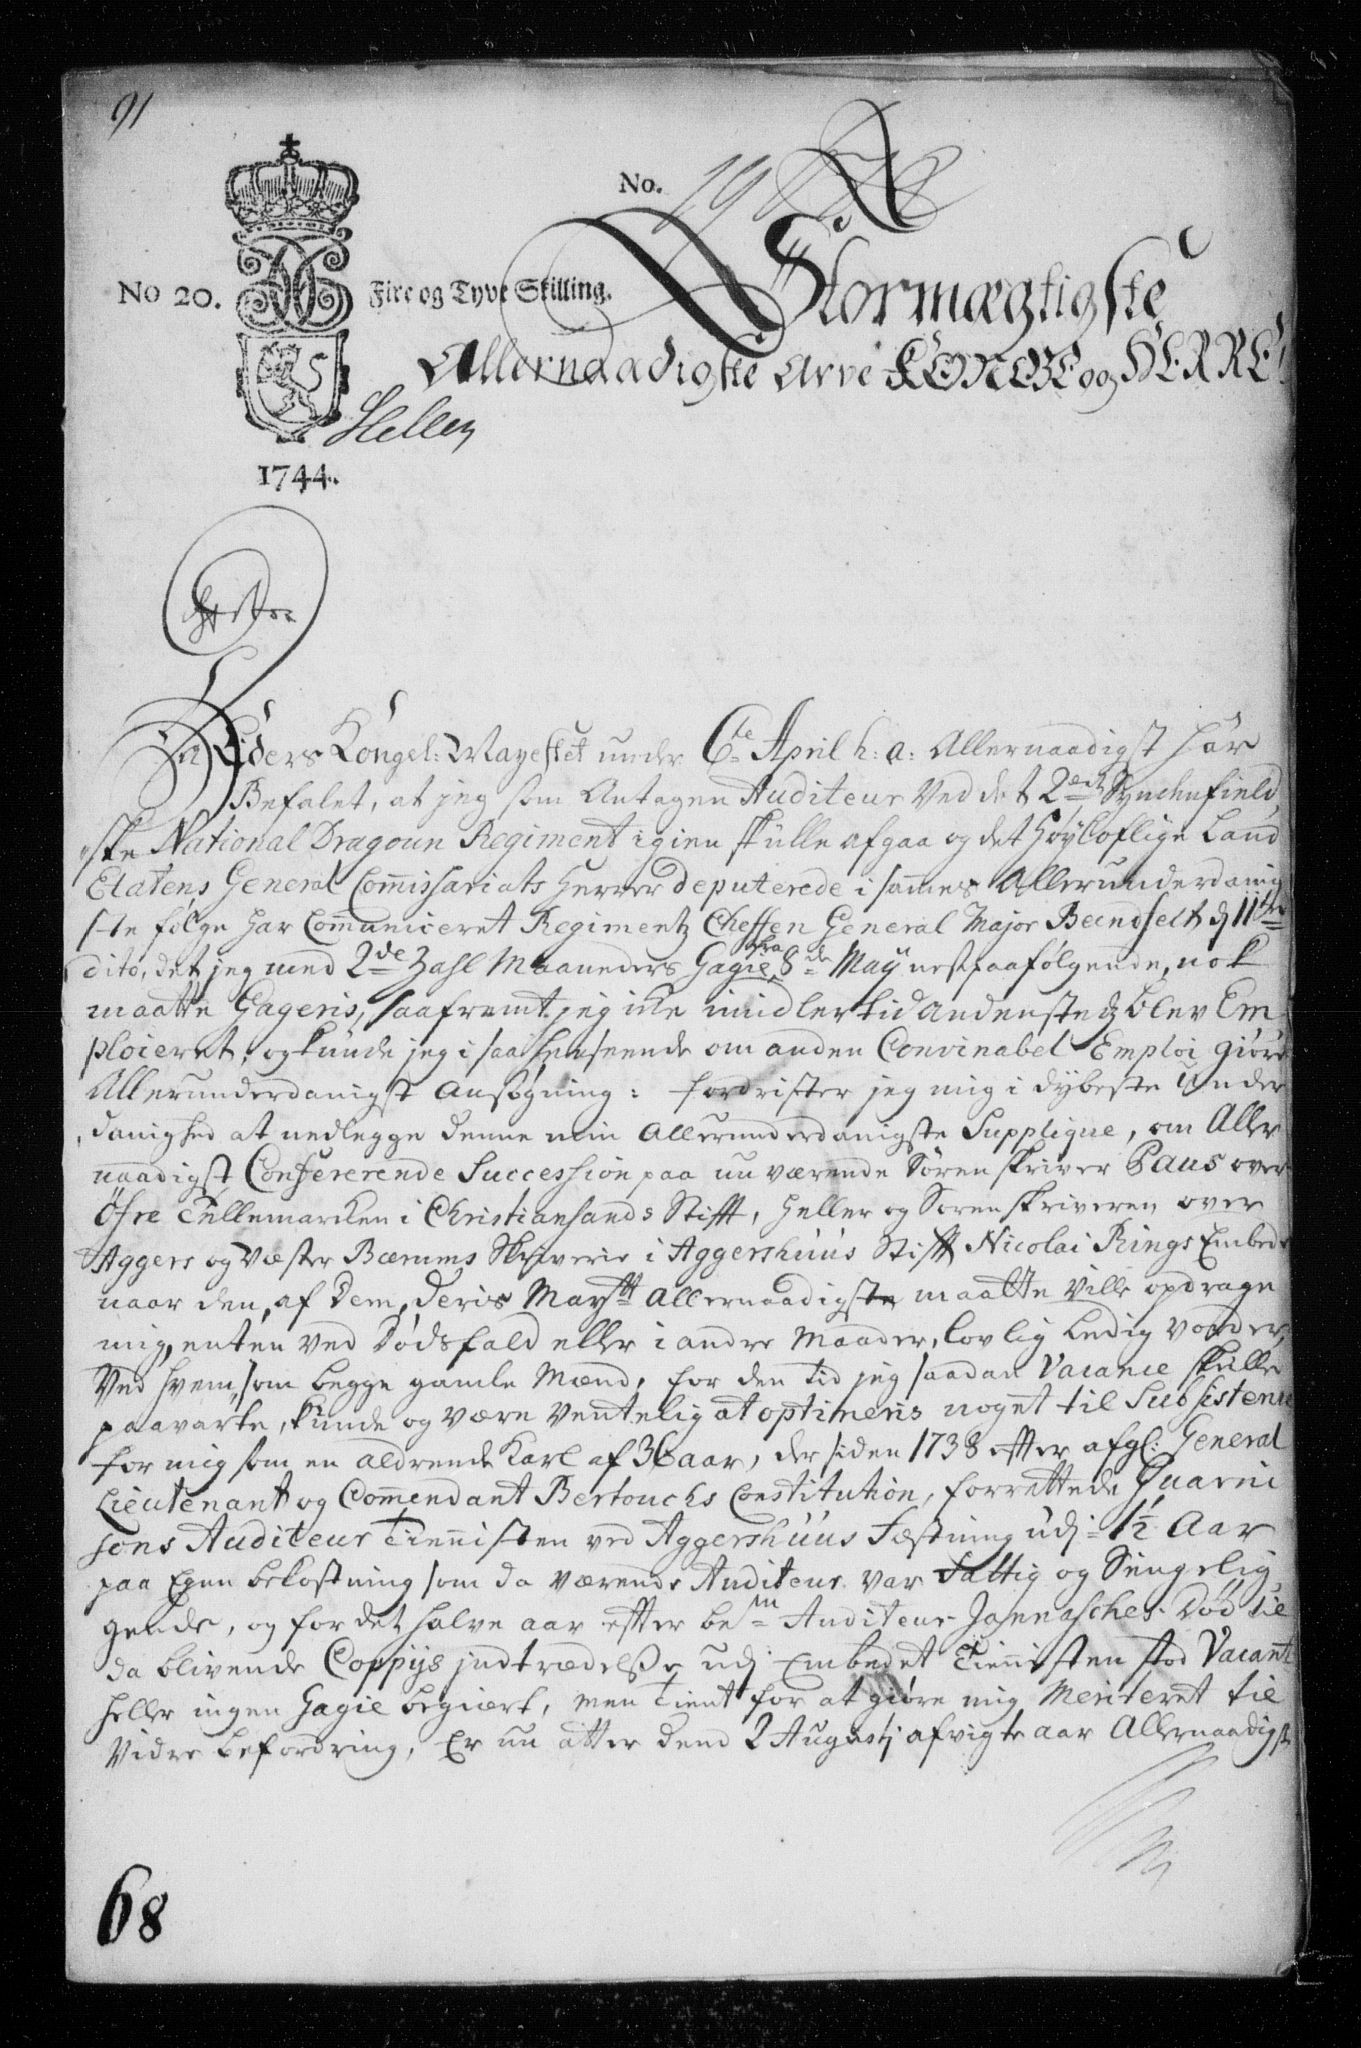 91
No.
No 20. Fire og Tyve Skilling.
Stormægtigste
Allernaadigste Arve KONGE og HERRE!
1744.
Eders Kongel: Mayestet under 6te April h: a: Allernaadigst har
Befalet, at jeg som Antagen Auditeur Ved det 2det Syndenfield
ske National Dragoun Regiment igien skulle afgaa og det Høyloflige Land
Etatens General Commissariats Herrer deputerede i sammes Allerunderdanig
ste følge har Communiceret Regimentz Cheffen General Major Beendfelt d 11te
dito, det jeg med 2de Zahl Maaneders Gagie, fra 8de May nestpaafølgende, nok
maatte Gageris, saafremt jeg icke imidlertid andenstedz blev Em
ploieret; og kunde jeg i saa henseende om anden Convinabel Emploi giøre
Allerunderdanigst Ansøgning: fordrister jeg mig i dybeste Under
danighed at nedlegge denne min Allerunderdanigste Supplique, om Aller
naadigst Confererende Succession paa nu værende Sørenskriver Paus over
Öfre Tellemarcken i Christiansands Stifft, heller og Sorenskriveren over
Aggers og Væster Bærums Skriverie i Aggershuus Stifft Nicolai Rings Embede
naar den, af Dem, Deris Maytt Allernaadigste maatte Ville opdrage
mig, enten ved Dødsfald eller i andre Maader, lovlig ledig vorder,
Ved hvem, som begge gamle Mænd, for den tid jeg saadan Vacance skulle
paavarte, kunde og være Ventelig at optineris noget til Subsistence
for mig som en aldrende Karl af 36 aar, der siden 1738 efter afgl: General
Lieutenant og Commendant Bertouchs Constitution, forrettede Guarni
sons Auditeur Tiennisten ved Aggershuus Fæstning udj 1½ Aar
paa Egen bekostning som da værende Auditeur var Fattig og Sengelig
gende, og for det halve aar efter bem. Auditeur Jannasches Død til
da blivende Coppys jndtrædelse udj Embedet Tiennisten stod Vacant
heller ingen Gagie begiert, men Tient for at giøre mig Meriteret til
Vidre befordring, Er nu atter dend 2 Augustj afvigte aar Allernaadigst
68